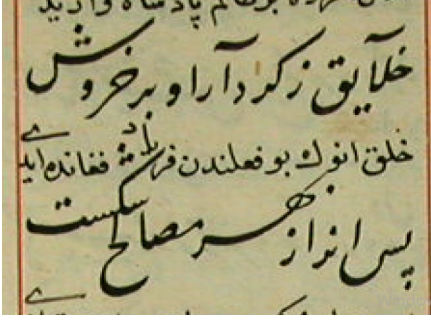 بو ظالم پادشاه
خلآیق ز کردآر او بر خروش
خلق انوك بو فعلندن فریاد فغانده ایدی
پس انرا ز بهر مصالح شکست